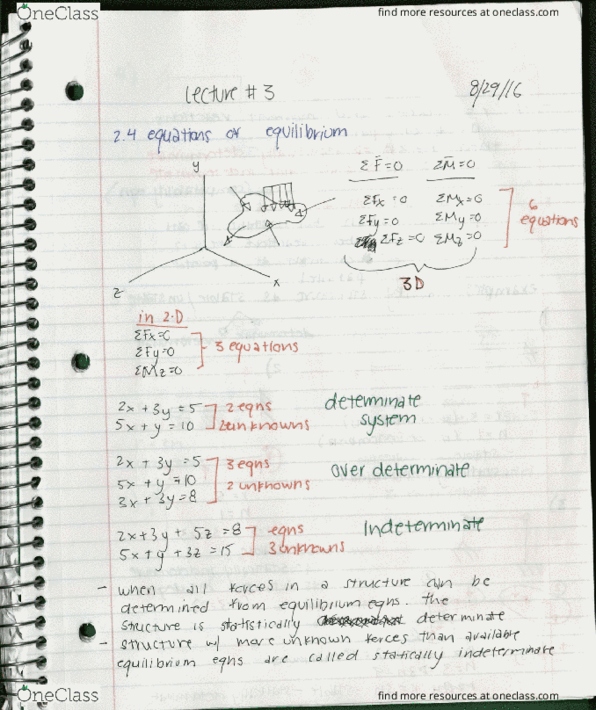 OneClass
find more resources at oneclass.com
Lecture # 3
8/29/16
2.4 equations of equilibrium
y
z
x
ΣF̄=0 ΣM̄=0
ΣFx=0 ΣMx=0
ΣFy=0 ΣMy=0
ΣFz=0 ΣMz=0
6 equations
3D
in 2-D
ΣFx=0
ΣFy=0
ΣMz=0
3 equations
2x + 3y = 5
5x + y = 10
2 eqns
2 unknowns
determinate
system
2x + 3y = 5
5x + y = 10
3x + 3y = 8
3 eqns
2 unknowns
over determinate
2x + 3y + 5z = 8
5x + y + 3z = 15
eqns
3 unknowns
Indeterminate
- when all forces in a structure can be
determined from equilibrium eqns. The
structure is statistically determinate
- structure w/ more unknown forces than available
equilibrium eqns are called statically indeterminate
OneClass
find more resources at oneclass.com